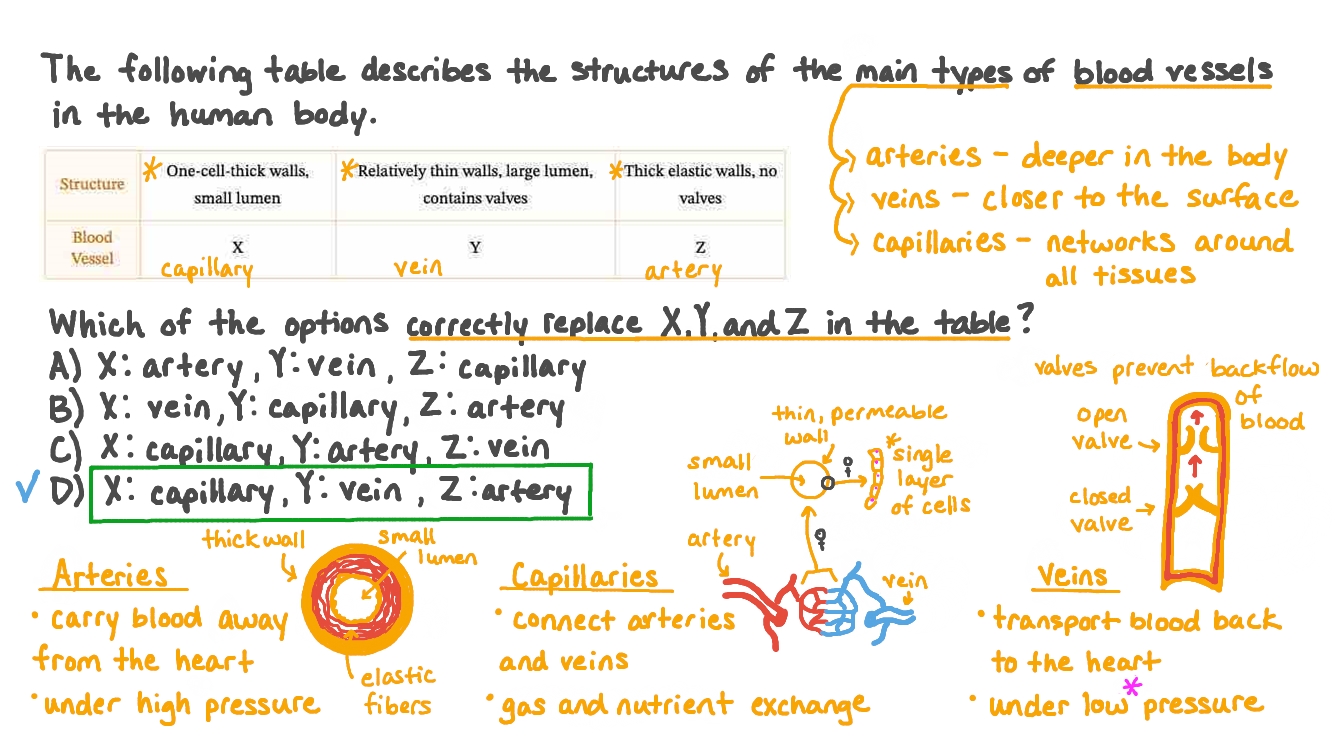 The following table describes the structures of the main types of blood vessels
in the human body.
arteries - deeper in the body
veins - closer to the surface
capillaries - networks around
all tissues
Structure
* One-cell-thick walls,
small lumen
* Relatively thin walls, large lumen,
contains valves
* Thick elastic walls, no
valves
Blood
Vessel
X
capillary
Y
vein
Z
artery
Which of the options correctly replace X, Y, and Z in the table?
A) X: artery, Y: vein, Z: capillary
B) X: vein, Y: capillary, Z: artery
C) X: capillary, Y: artery, Z: vein
✓ D) X: capillary, Y: vein, Z: artery
Arteries
• carry blood away
from the heart
• under high pressure
thick wall
small
lumen
elastic
fibers
Capillaries
• connect arteries
and veins
• gas and nutrient exchange
thin, permeable
wall
small
lumen
* single
layer
of cells
artery
vein
valves prevent backflow
of
blood
open
valve
closed
valve
Veins
• transport blood back
to the heart
• under low* pressure